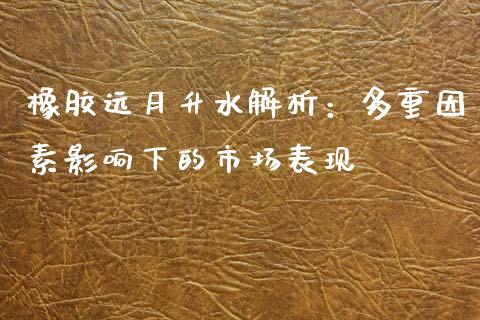 橡胶远月升水解析：多重因
素影响下的市场表现